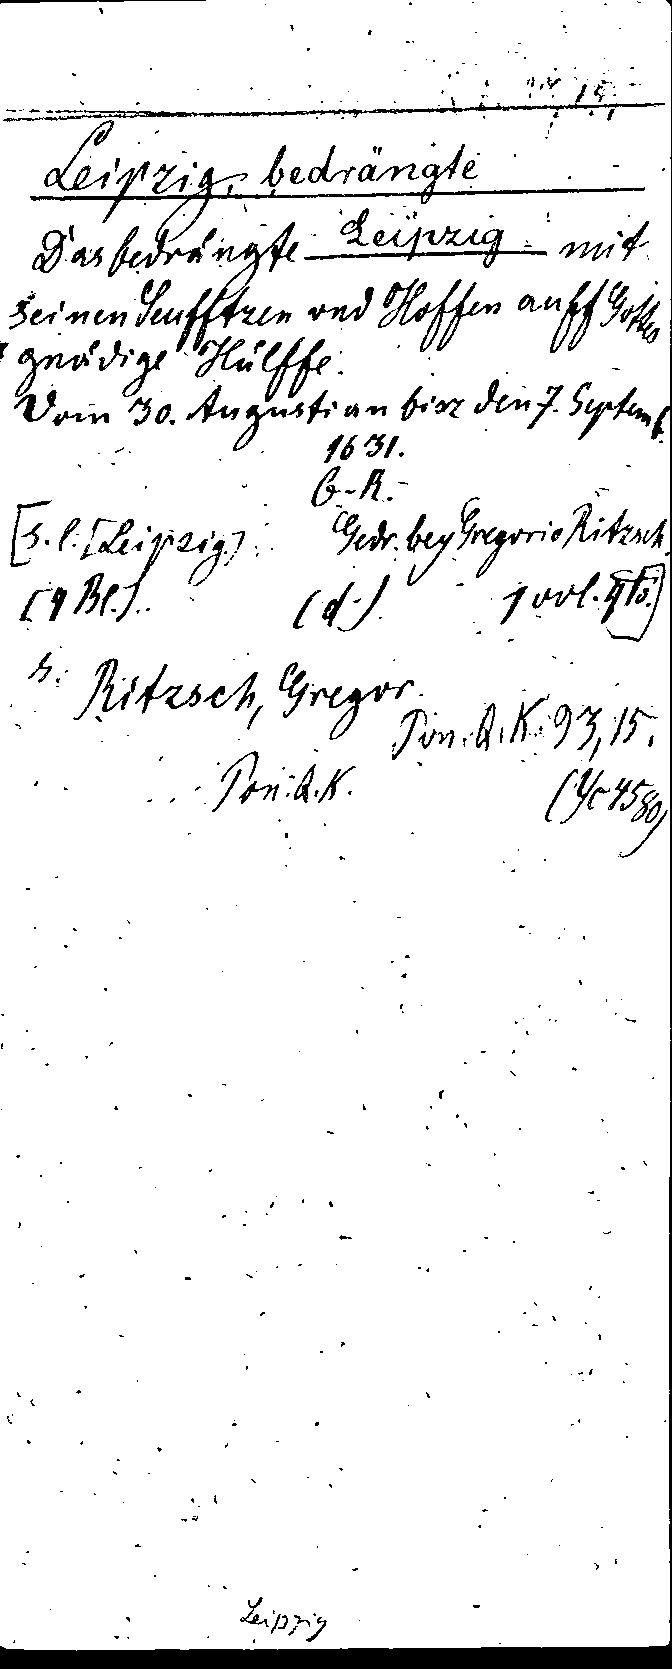 Leipzig, bedrängte
Das bedrängte Leipzig mit
seinen Seufftzen vnd Hoffen auff Gottes
gnädige Hülffe.
Vom 30. Augusti an bisz den 7. Septemb.
1631.
G-R.
[s. l. [Leipzig] Gedr. bey Gregorio Ritzsch.
(4 Bl.) (d.) 1 vol. 4to.]
s. Ritzsch, Gregor.
Pon. Q. K. 93, 15.
Pon. Q. K. (Yc 4580)
Leipzig